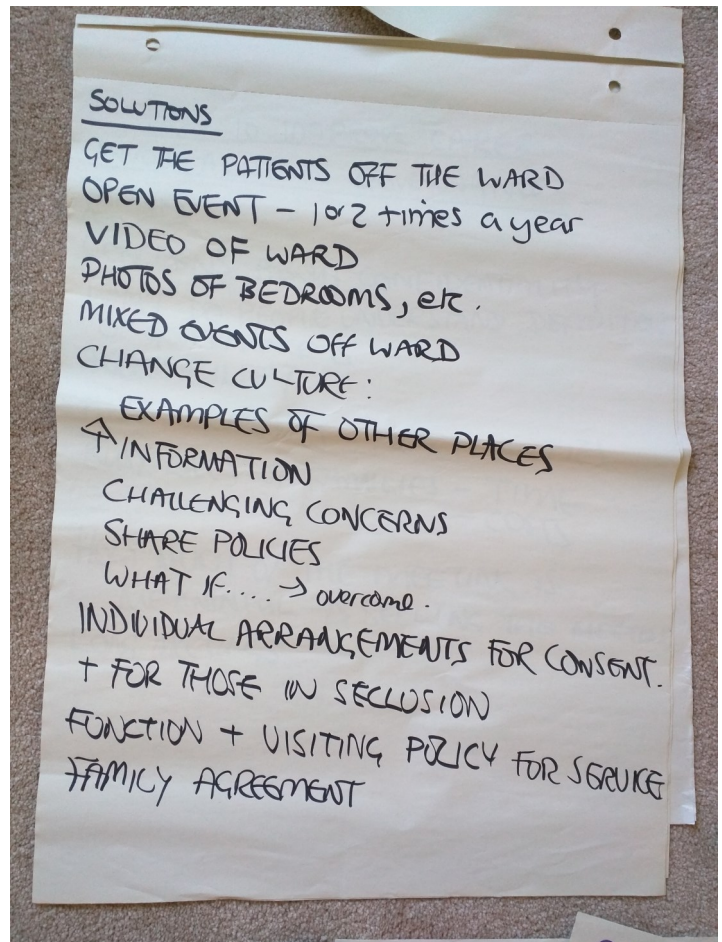 SOLUTIONS
GET THE PATIENTS OFF THE WARD
OPEN EVENT - 1 or 2 times a year
VIDEO OF WARD
PHOTOS OF BEDROOMS, etc.
MIXED EVENTS OFF WARD
CHANGE CULTURE:
EXAMPLES OF OTHER PLACES
↑ INFORMATION
CHALLENGING CONCERNS
SHARE POLICIES
WHAT IF.... → overcome.
INDIVIDUAL ARRANGEMENTS FOR CONSENT.
+ FOR THOSE IN SECLUSION
FUNCTION + VISITING POLICY FOR SERVICE
FAMILY AGREEMENT